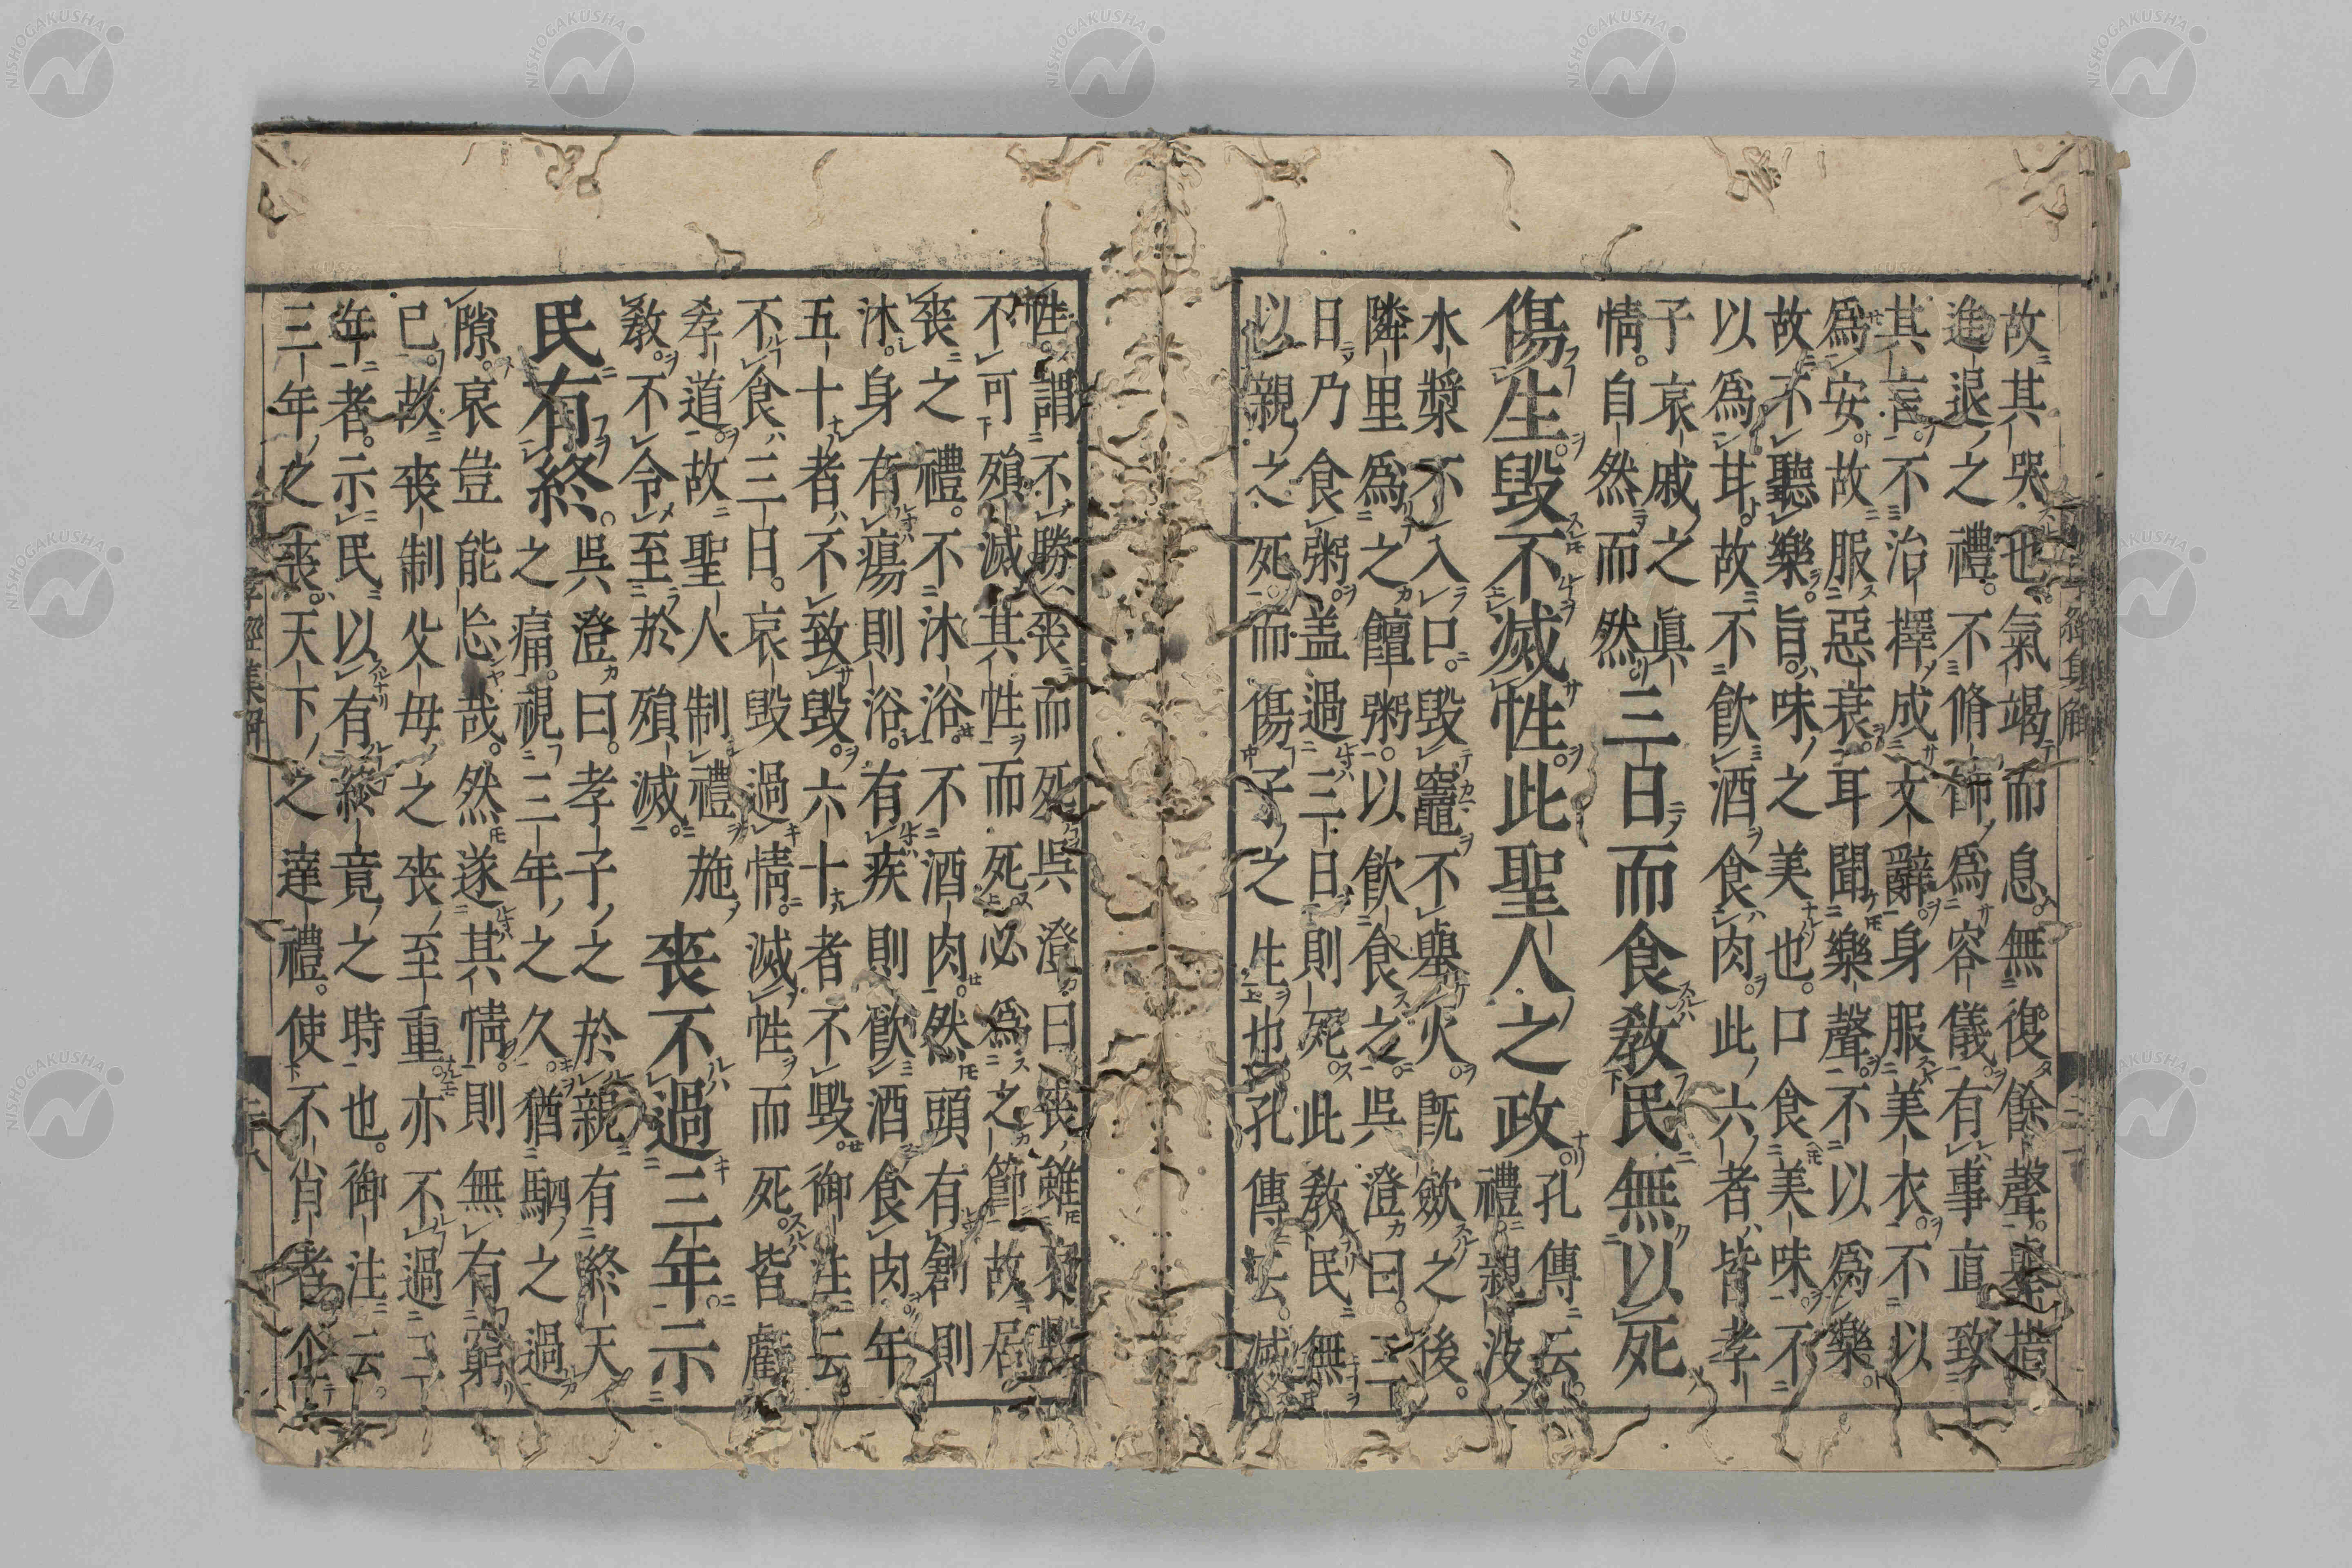 故其哭也。氣竭而息。無復餘聲。舉措
進退之禮。不脩飾爲容儀有事直致
其言。不治擇成文辭。身服美衣。不以
爲安。故服惡衰。耳聞樂聲。不以爲樂。
故不聽樂。旨味之美也。口食美味。不
以爲甘。故不飮酒食肉。此六者皆孝
子哀戚之眞
情。自然而然 三日而食敎民無以死
傷生。毀不滅性。此聖人之政 孔傳云。
禮。親沒
水漿不入口。毀竈不舉火。旣斂之後。
隣里爲之饘粥。以飮食之。吳澄曰。三
日乃食粥。盖過三日則死。此敎民無
以親之死而傷子之生也。孔傳云。滅
性。謂不勝喪而死吳澄曰喪雖哀毀
不可殞滅其性而死必爲之節故居
喪之禮。不沐浴。不酒肉。然頭有創則
沐。身有瘍則浴。有疾則飮酒食肉年
五十者不致毀。六十者不毀。御注云
不食三日。哀毀過情。滅性而死。皆虧
孝道。故聖人制禮施
敎。不令至於殞滅。 喪不過三年。示
民有終。吳澄曰。孝子之於親有終天
之痛。視三年之久。猶駟之過
隙。哀豈能忘哉。然遂其情。則無有窮
已。故喪制父毋之喪至重。亦不過三
年者。示民以有終竟之時也。御注云。
三年之喪。天下之達禮。使不肖者企
孝經集解